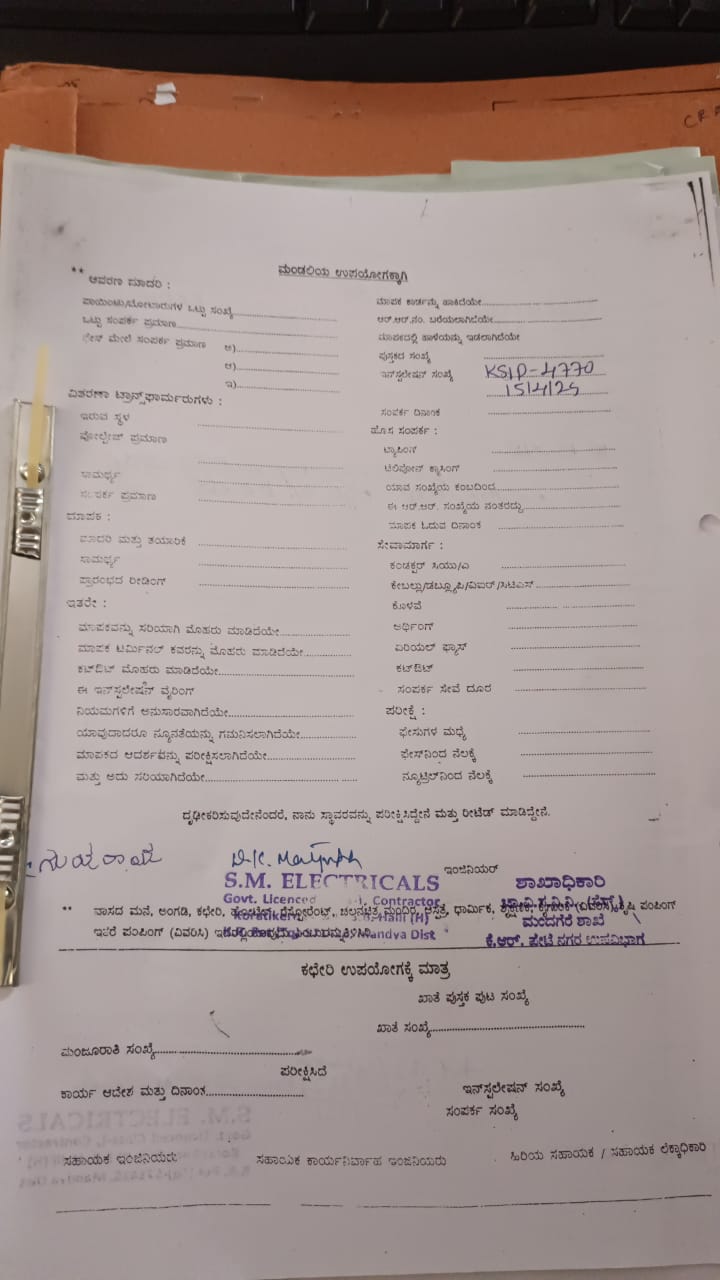 CR
ಮಂಡಲಿಯ ಉಪಯೋಗಕ್ಕಾಗಿ
** ಆವರಣ ಮಾದರಿ :
ಪಾಯಿಂಟು/ಮೋಟಾರುಗಳ ಒಟ್ಟು ಸಂಖ್ಯೆ
ಒಟ್ಟು ಸಂಪರ್ಕ ಪ್ರಮಾಣ
ಫೇಸ್ ಮೇಲೆ ಸಂಪರ್ಕ ಪ್ರಮಾಣ ಅ)
ಆ)
ಇ)
ವಿತರಣಾ ಟ್ರಾನ್ಸ್‌ಫಾರ್ಮರುಗಳು :
ಇರುವ ಸ್ಥಳ
ವೋಲ್ಟೇಜ್ ಪ್ರಮಾಣ
ಸಾಮರ್ಥ್ಯ
ಸಂಪರ್ಕ ಪ್ರಮಾಣ
ಮಾಪಕ :
ಮಾದರಿ ಮತ್ತು ತಯಾರಿಕೆ
ಸಾಮರ್ಥ್ಯ
ಪ್ರಾರಂಭದ ರೀಡಿಂಗ್
ಇತರೇ :
ಮಾಪಕವನ್ನು ಸರಿಯಾಗಿ ಮೊಹರು ಮಾಡಿದೆಯೇ
ಮಾಪಕ ಟರ್ಮಿನಲ್ ಕವರನ್ನು ಮೊಹರು ಮಾಡಿದೆಯೇ
ಕಟ್ಔಟ್ ಮೊಹರು ಮಾಡಿದೆಯೇ
ಈ ಇನ್‌ಸ್ಟಲೇಷನ್ ವೈರಿಂಗ್
ನಿಯಮಗಳಿಗೆ ಅನುಸಾರವಾಗಿದೆಯೇ
ಯಾವುದಾದರೂ ನ್ಯೂನತೆಯನ್ನು ಗಮನಿಸಲಾಗಿದೆಯೇ
ಮಾಪಕದ ಆದರ್ಶವನ್ನು ಪರೀಕ್ಷಿಸಲಾಗಿದೆಯೇ
ಮತ್ತು ಅದು ಸರಿಯಾಗಿದೆಯೇ
ಮಾಪಕ ಕಾರ್ಡನ್ನು ಹಾಕಿದೆಯೇ
ಆರ್.ಆರ್.ನಂ. ಬರೆಯಲಾಗಿದೆಯೇ
ಮಾಪಕದಲ್ಲಿ ಹಾಳೆಯನ್ನು ಇಡಲಾಗಿದೆಯೇ
ಪುಸ್ತಕದ ಸಂಖ್ಯೆ
ಇನ್‌ಸ್ಟಲೇಷನ್ ಸಂಖ್ಯೆ KSIP-4770
15/4/25
ಸಂಪರ್ಕ ದಿನಾಂಕ
ಹೊಸ ಸಂಪರ್ಕ :
ಟ್ಯಾಪಿಂಗ್
ಟೆಲಿಫೋನ್ ಕ್ರಾಸಿಂಗ್
ಯಾವ ಸಂಖ್ಯೆಯ ಕಂಬದಿಂದ
ಈ ಆರ್.ಆರ್. ಸಂಖ್ಯೆಯ ನಂತರದ್ದು
ಮಾಪಕ ಓದುವ ದಿನಾಂಕ
ಸೇವಾಮಾರ್ಗ :
ಕಂಡಕ್ಟರ್ ಸಿಯು/ಎ
ಕೇಬಲ್ಲು/ಡಬ್ಲ್ಯೂಪಿ/ವಿಐಆರ್/ಸಿಟಿಎಸ್
ಕೊಳವೆ
ಅರ್ಥಿಂಗ್
ಏರಿಯಲ್ ಫ್ಯೂಸ್
ಕಟ್ಔಟ್
ಸಂಪರ್ಕ ಸೇವೆ ದೂರ
ಪರೀಕ್ಷೆ :
ಫೇಸುಗಳ ಮಧ್ಯೆ
ಫೇಸ್‌ನಿಂದ ನೆಲಕ್ಕೆ
ನ್ಯೂಟ್ರಲ್‌ನಿಂದ ನೆಲಕ್ಕೆ
ದೃಢೀಕರಿಸುವುದೇನೆಂದರೆ, ನಾನು ಸ್ಥಾವರವನ್ನು ಪರೀಕ್ಷಿಸಿದ್ದೇನೆ ಮತ್ತು ರೀಟೆಡ್ ಮಾಡಿದ್ದೇನೆ.
ಇಂಜಿನಿಯರ್
S.M. ELECTRICALS
Govt. Licenced Contractor
Mandya Dist
ಶಾಖಾಧಿಕಾರಿ
ಮಂದಗೆರೆ ಶಾಖೆ
ಕೆ.ಆರ್. ಪೇಟೆ ನಗರ ಉಪವಿಭಾಗ
** ವಾಸದ ಮನೆ, ಅಂಗಡಿ, ಕಛೇರಿ, ರೆಸ್ಟೋರೆಂಟ್, ಚಲನಚಿತ್ರ ಮಂದಿರ, ಆಸ್ಪತ್ರೆ, ಧಾರ್ಮಿಕ, ಶೈಕ್ಷಣಿಕ, ಕೈಗಾರಿಕೆ (ವಿವರಿಸಿ), ಕೃಷಿ ಪಂಪಿಂಗ್
ಇತರೆ ಪಂಪಿಂಗ್ (ವಿವರಿಸಿ)
ಕಛೇರಿ ಉಪಯೋಗಕ್ಕೆ ಮಾತ್ರ
ಖಾತೆ ಪುಸ್ತಕ ಪುಟ ಸಂಖ್ಯೆ
ಖಾತೆ ಸಂಖ್ಯೆ
ಮಂಜೂರಾತಿ ಸಂಖ್ಯೆ
ಪರೀಕ್ಷಿಸಿದೆ
ಕಾರ್ಯ ಆದೇಶ ಮತ್ತು ದಿನಾಂಕ
ಇನ್‌ಸ್ಟಲೇಷನ್ ಸಂಖ್ಯೆ
ಸಂಪರ್ಕ ಸಂಖ್ಯೆ
ಸಹಾಯಕ ಇಂಜಿನಿಯರು
ಸಹಾಯಕ ಕಾರ್ಯನಿರ್ವಾಹ ಇಂಜಿನಿಯರು
ಹಿರಿಯ ಸಹಾಯಕ / ಸಹಾಯಕ ಲೆಕ್ಕಾಧಿಕಾರಿ